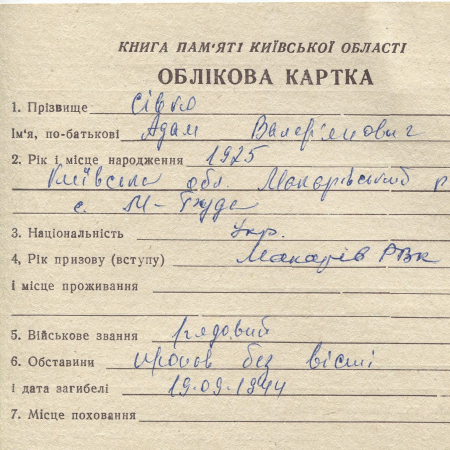 КНИГА ПАМ'ЯТІ КИЇВСЬКОЇ ОБЛАСТІ
ОБЛІКОВА КАРТКА
1. Прізвище Сівко
Ім'я, по-батькові Адам Валер'янович
2. Рік і місце народження 1925
Київська обл. Макарівський р
с. М-Буда
3. Національність Укр.
4, Рік призову (вступу) Макарів РВК
і місце проживання
5. Військове звання рядовий
6. Обставини пропов без вісті
і дата загибелі 19.09.1944
7. Місце поховання